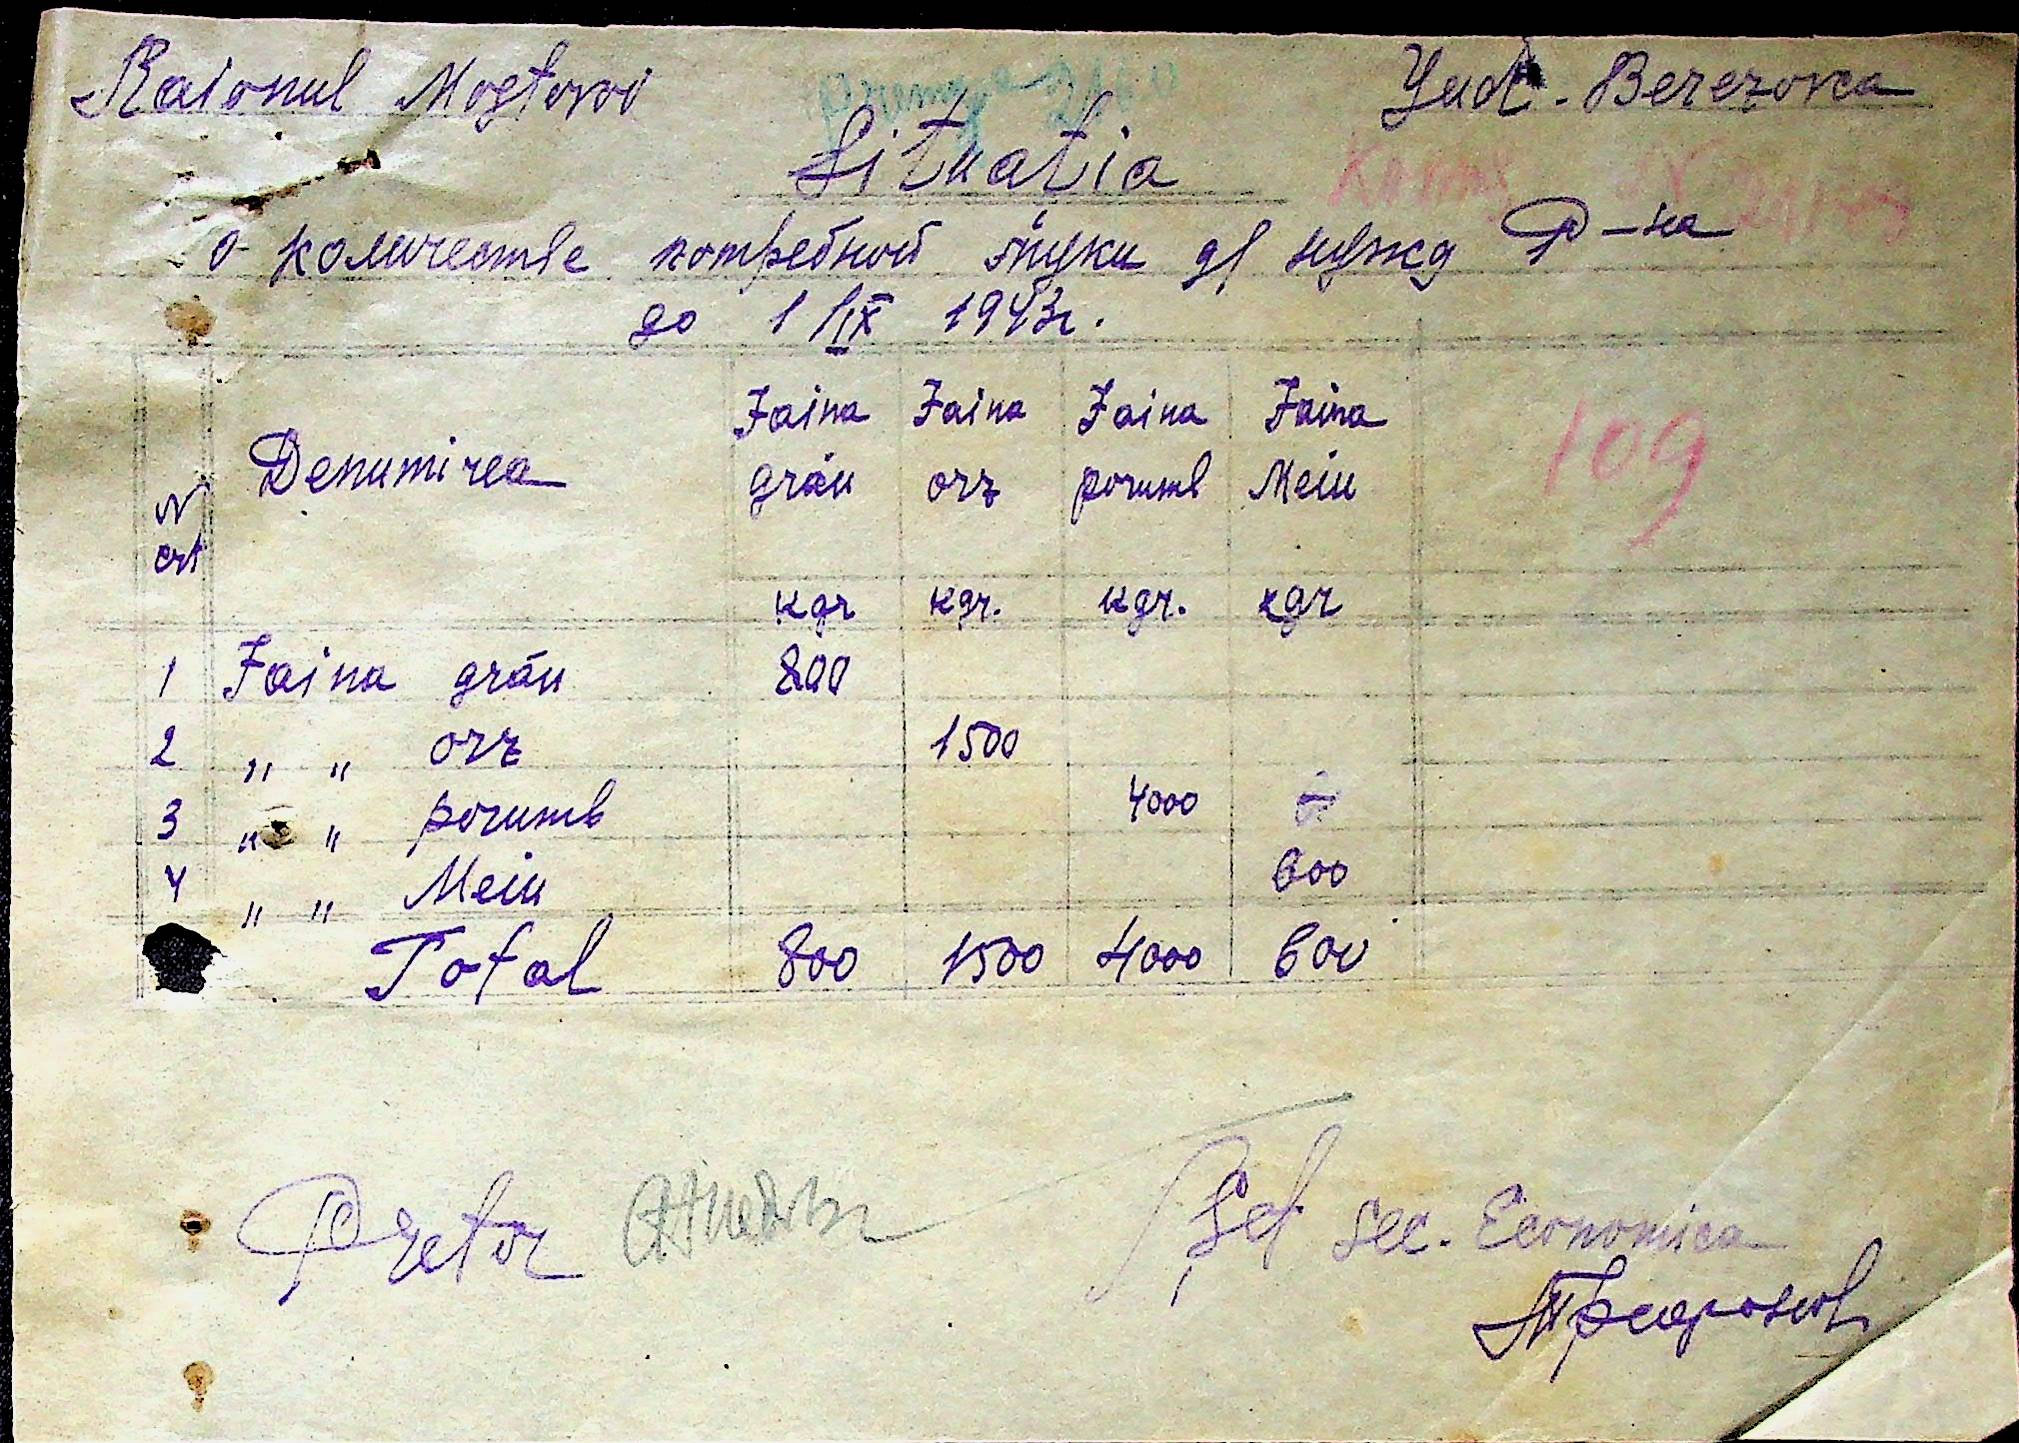 Raionul Mostovoi Jud. Berezovca
Situatia
о количестве потребной муки дл нужд Р-на
до 1/IX 1943г.
N crt Denumirea Faina grâu Faina orz Faina porumb Faina Meiu
109
kgr kgr. kgr. kgr
1 Faina grâu 800
2 „ „ orz 1500
3 „ „ porumb 4000
4 „ „ Meiu 600
Total 800 1500 4000 600
Pretor Șef sec. Economica